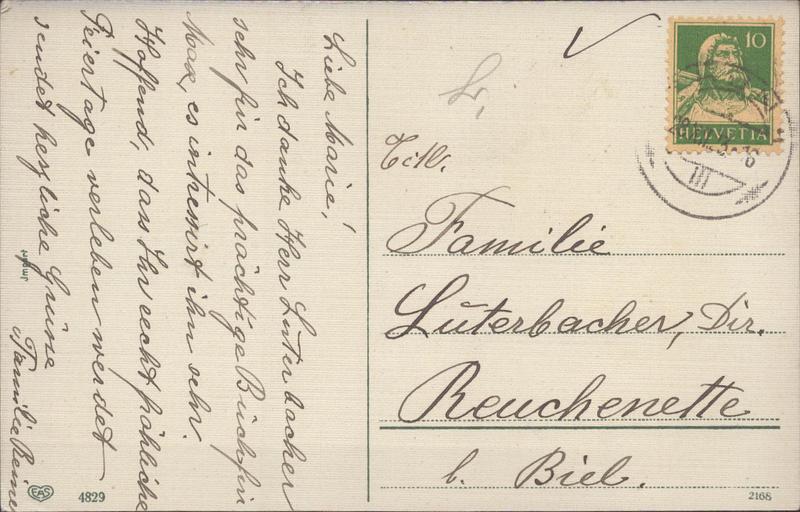 Liebe Marie!
Ich danke Herr Luterbacher
sehr für das prächtige Buch für
Max, es intressirt ihn sehr.
Hoffend, dass Ihr recht fröhliche
Feiertage verleben werdet
sendet herzliche Grüsse
Familie
EAS
4829
10
HELVETIA
III
Tit.
Familie
Luterbacher, Dir.
Reuchenette
b. Biel.
2168